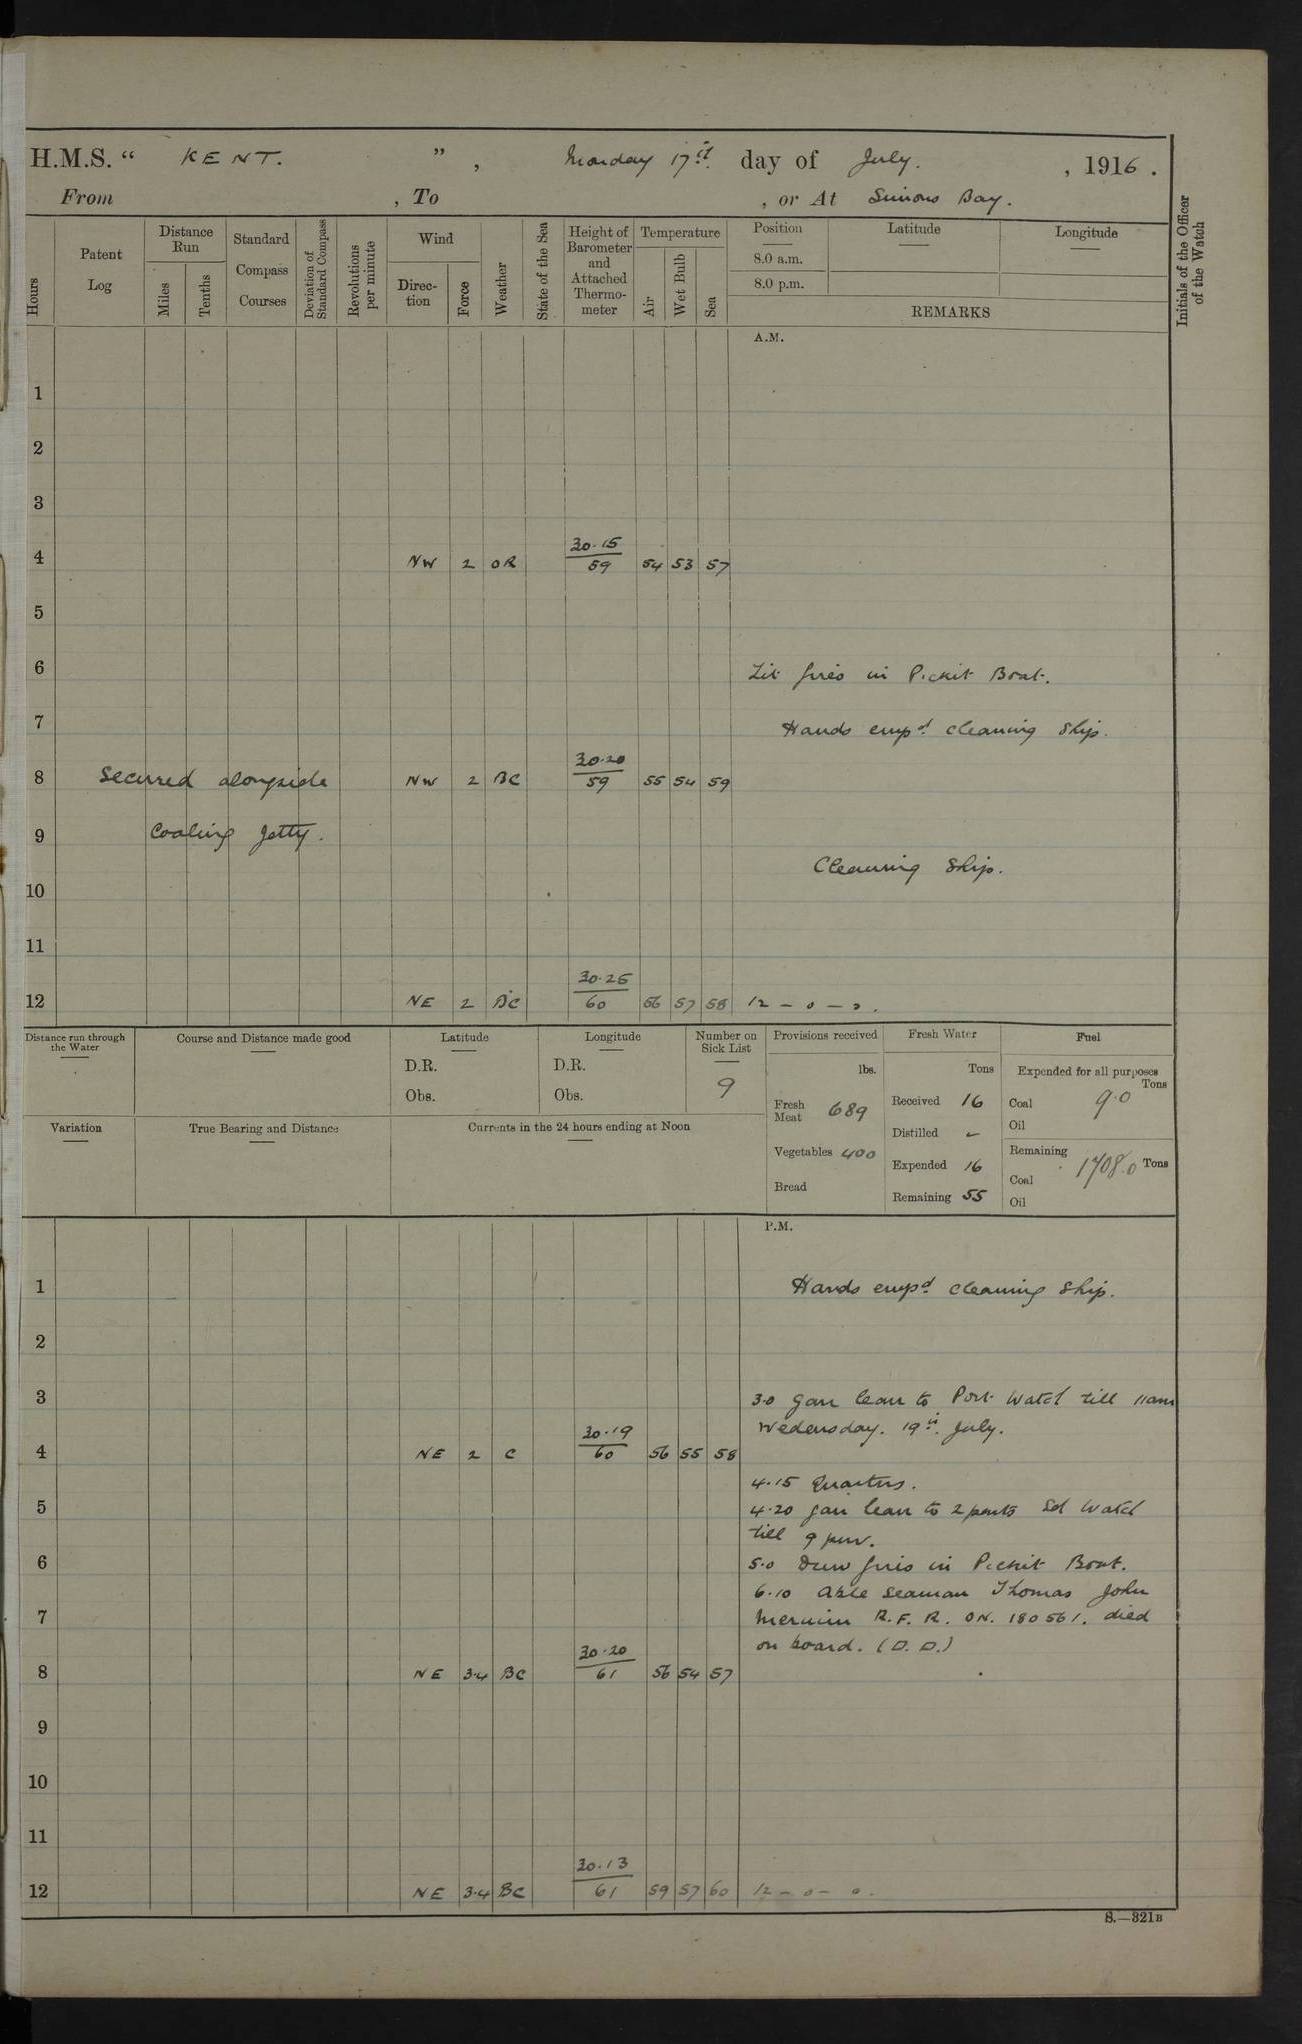 H.M.S. “ KENT. ” , Monday 17th day of July. , 1916 .
From , To , or At Simons Bay.
Hours
Patent Log
Distance Run
Miles
Tenths
Standard Compass Courses
Deviation of Standard Compass
Revolutions per minute
Wind
Direction
Force
Weather
State of the Sea
Height of Barometer and Attached Thermometer
Temperature
Air
Wet Bulb
Sea
Position
8.0 a.m.
8.0 p.m.
Latitude
Longitude
REMARKS
Initials of the Officer of the Watch
A.M.
1
2
3
30.15
4 NW 2 OR 59 54 53 57
5
6 Lit fires in Picket Boat.
7 Hands empd. cleaning Ship.
30.20
8 Secured alongside NW 2 BC 59 55 54 59
9 Coaling Jetty.
Cleaning Ship.
10
11
30.25
12 NE 2 BC 60 56 57 58 12 – 0 – 0.
Distance run through the Water
Course and Distance made good
Latitude
D.R.
Obs.
Longitude
D.R.
Obs.
Number on Sick List
9
Provisions received
lbs.
Fresh Meat 689
Vegetables 400
Bread
Fresh Water
Tons
Received 16
Distilled –
Expended 16
Remaining 55
Fuel
Expended for all purposes
Tons
Coal 9.0
Oil
Remaining
Coal 1708.0 Tons
Oil
Variation
True Bearing and Distance
Currents in the 24 hours ending at Noon
P.M.
1 Hands empd. cleaning Ship.
2
3 3.0 Gave leave to Port Watch till 11am
Wedensday. 19th. July.
30.19
4 NE 2 C 60 56 55 58
4.15 Quarters.
5 4.20 Gave leave to 2 parts Sd Watch
till 9 pm.
6 5.0 Drew fires in Picket Boat.
6.10 Able Seaman Thomas John
7 R.F.R. ON. 180561. died
on board. (D.D.)
30.20
8 NE 3.4 BC 61 56 54 57
9
10
11
30.13
12 NE 3.4 BC 61 59 57 60 12 – 0 – 0.
S.—321B